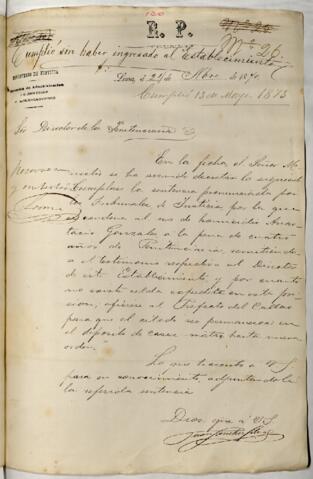 E. P.
Cumplió sin haber ingresado al Establecimiento
Nº 26.
MINISTERIO DE JUSTICIA
Lima, á 24 de Nbre. de 1870.
Cumplió 13 de Mayo 1873
Sor. Director de la Penitenciaría
En la fecha, el Señor Mi
nistro se ha servido decretar lo siguiente
Cúmplase la sentencia pronunciada por
los Tribunales de Justicia por la que
se condena al reo de homicidio Anas
tacio Gonzales a la pena de cuatro
años de Penitenciaría, remitiéndo
se el testimonio respectivo al Director
de este Establecimiento, y por cuanto
no existe celda expedita en esta
oficiese al Prefecto del Callao
para que el citado reo permanezca en
el depósito de casas matas hasta nueva
orden."
Lo que trascribo a VS.
para su conocimiento, adjuntándole
la referida sentencia
Dios gue. á VS.